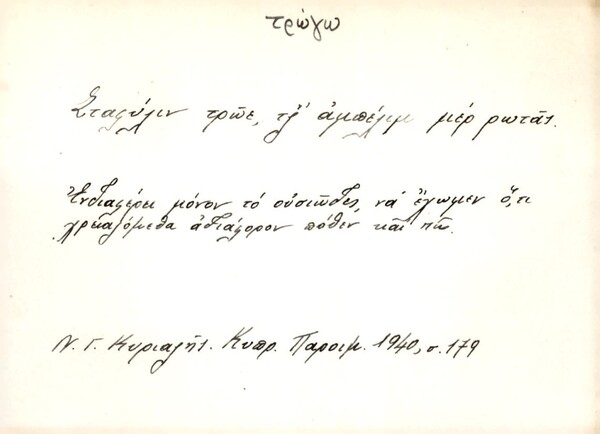 τρώγω
Σταφύλιν τρῶε, τζ̌' ἀμπέλιμ μέρ ρωτᾶς.
Ἐνδιαφέρει μόνον τό οὐσιῶδες, νά ἔχωμεν ὅ,τι
χρειαζόμεθα ἀδιάφορον πόθεν καί πῶς.
Ν. Γ. Κυριαζῆς. Κυπρ. Παροιμ. 1940, σ. 179